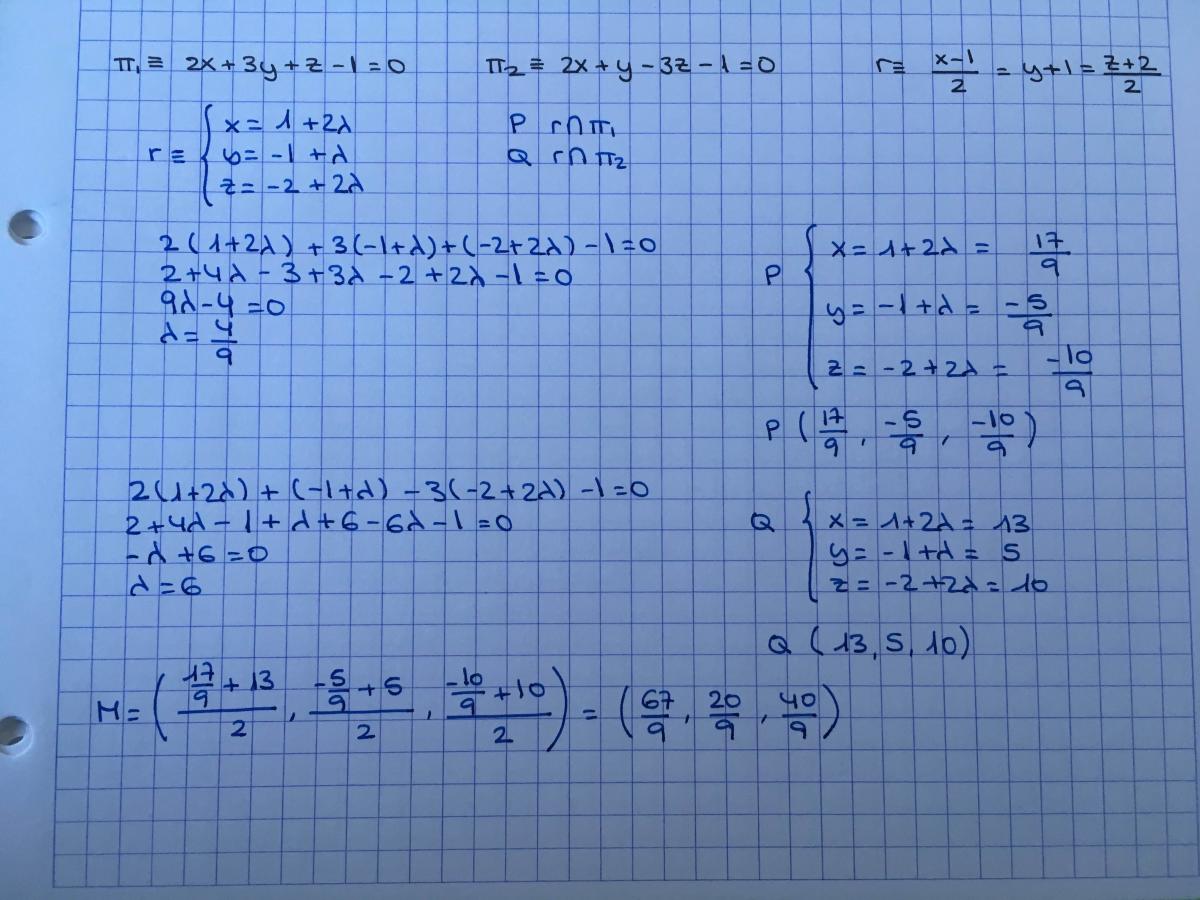 π₁ ≡ 2x+3y+z-1=0 π₂ ≡ 2x+y-3z-1=0 r≡ (x-1)/2 = y+1 = (z+2)/2
r ≡ { x = 1+2λ P r∩π₁
y = -1+λ Q r∩π₂
z = -2+2λ
2(1+2λ)+3(-1+λ)+(-2+2λ)-1=0
2+4λ-3+3λ-2+2λ-1=0
9λ-4=0
λ = 4/9
P { x = 1+2λ = 17/9
y = -1+λ = -5/9
z = -2+2λ = -10/9
P (17/9, -5/9, -10/9)
2(1+2λ)+(-1+λ)-3(-2+2λ)-1=0
2+4λ-1+λ+6-6λ-1=0
-λ+6=0
λ=6
Q { x = 1+2λ = 13
y = -1+λ = 5
z = -2+2λ = 10
Q (13, 5, 10)
M = ((17/9+13)/2, (-5/9+5)/2, (-10/9+10)/2) = (67/9, 20/9, 40/9)